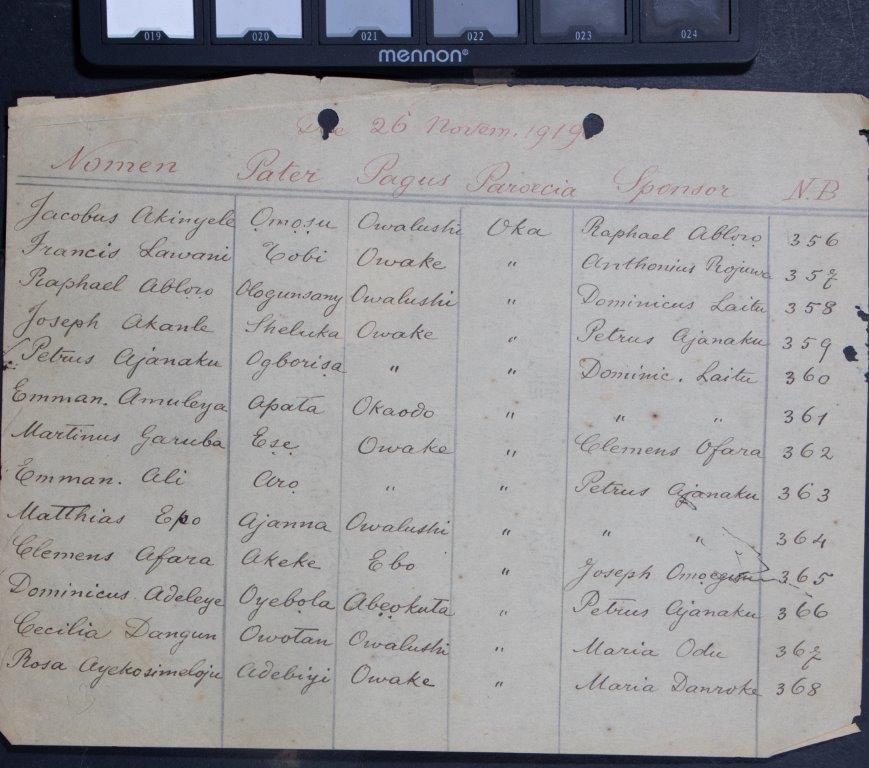 019 020 021 022 023 024
mennon®
Die 26 Novem. 1919
Nomen Pater Pagus Paroecia Sponsor N.B
Jacobus Akinyele Ọmọṣu Owalushi Oka Raphael Abloro 356
Francis Lawani Tobi Owake " Anthonius Rojuwa 357
Raphael Abloro Ologunsany Owalushi " Dominicus Laitu 358
Joseph Akanle Sheluka Owake " Petrus Ajanaku 359
Petrus Ajanaku Ogboriṣa " " Dominic. Laitu 360
Emman. Amuleya Apata Okaodo " " " 361
Martinus Garuba Eṣe Owake " Clemens Ofara 362
Emman. Ali Arọ " " Petrus Ajanaku 363
Matthias Epo Ajanna Owalushi " " " 364
Clemens Afara Akeke Ebo " Joseph 365
Dominicus Adeleye Oyebọla Abẹokuta " Petrus Ajanaku 366
Cecilia Dangun Owotan Owalushi " Maria Odu 367
Rosa Ayekosimeloju Adebiyi Owake " Maria Danroke 368